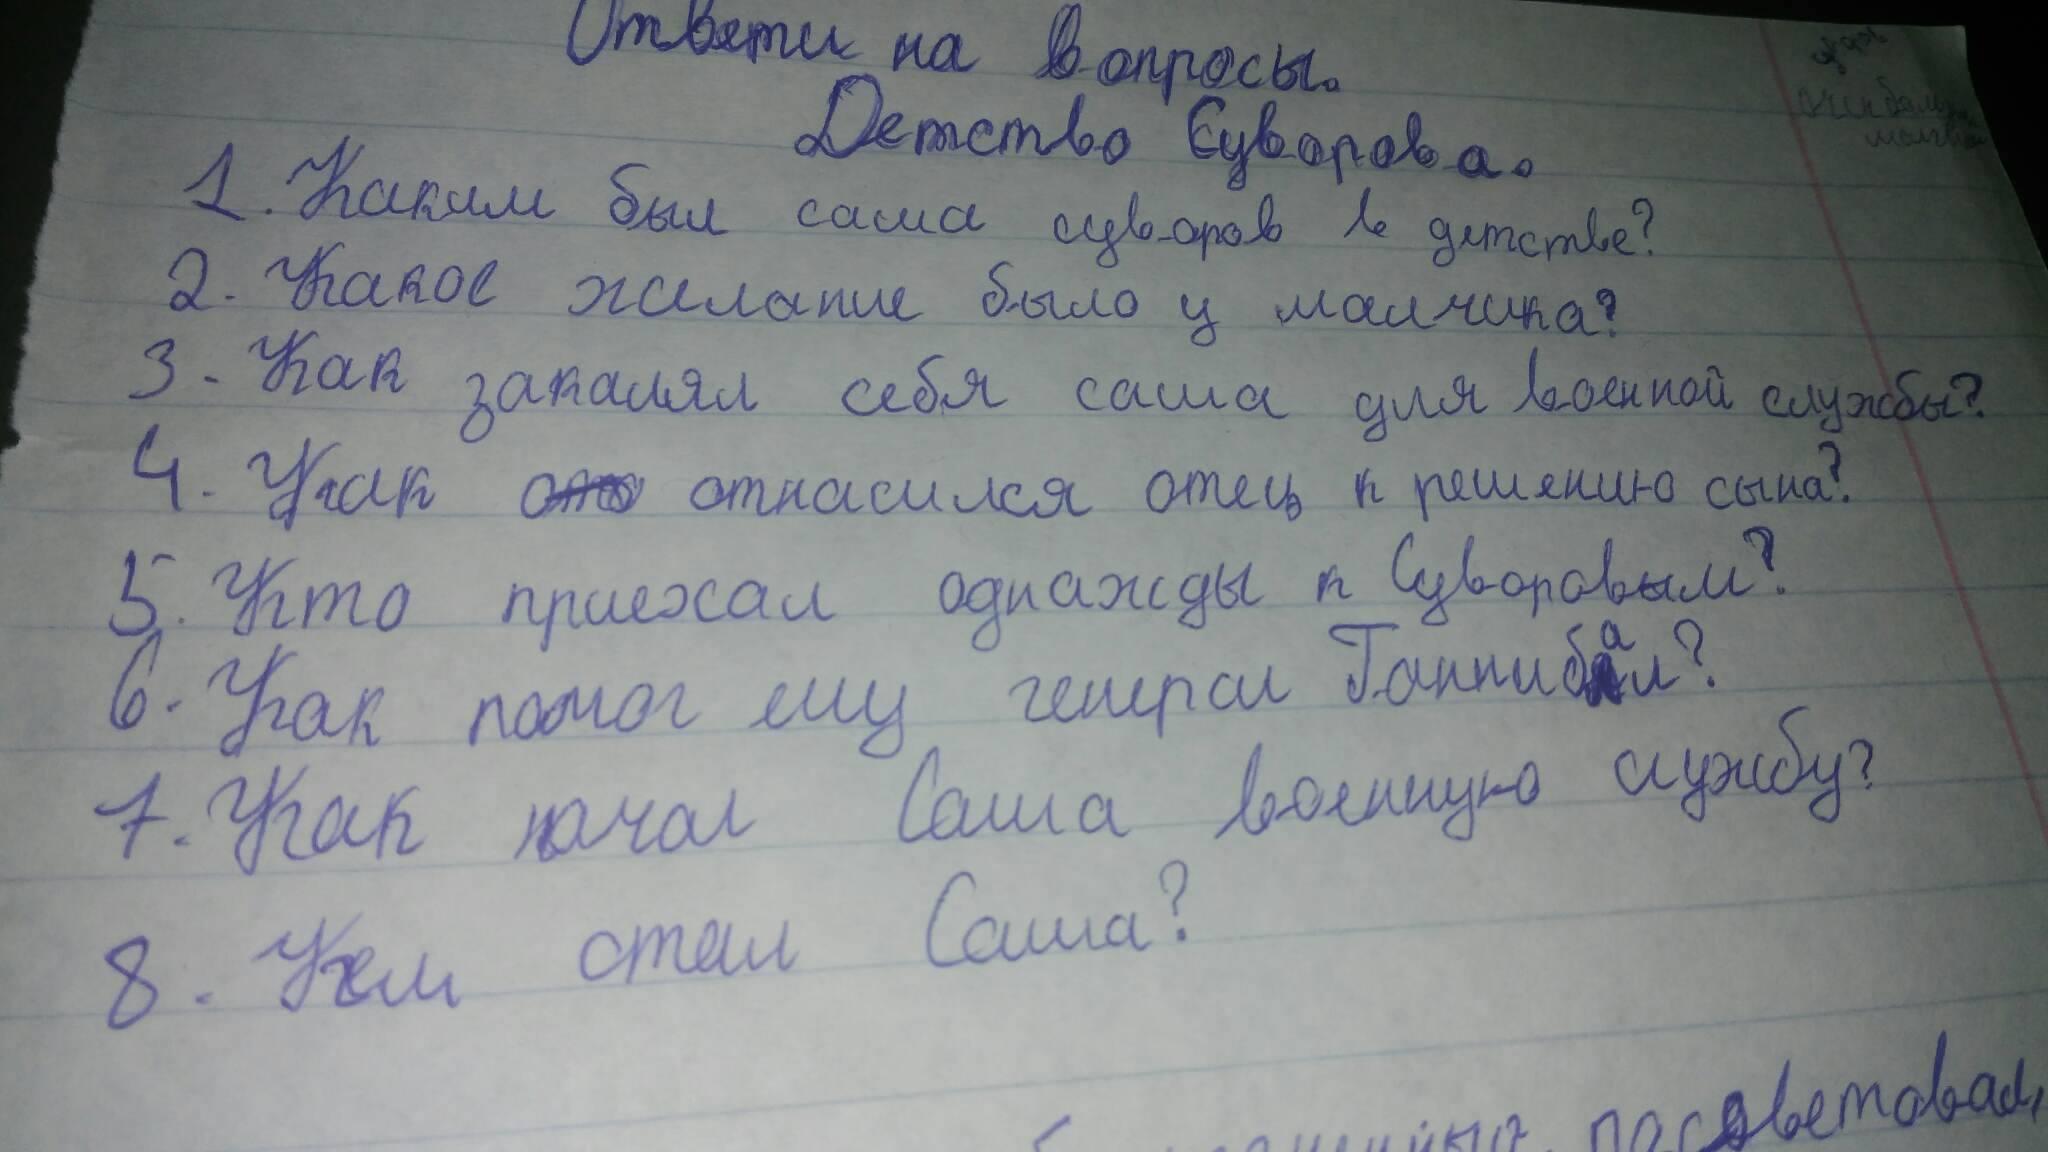 Ответи на вопросы.
Детство Суворова.
1. Каким был саша суворов в детстве?
2. Какое желание было у малчика?
3. Как закалял себя саша для военной службы?
4. Как отнасился отец к решению сына?
5. Кто приехал однажды к Суворовым?
6. Как помог ему генерал Ганнибал?
7. Как начал Саша военную службу?
8. Кем стал Саша?
посоветовал,